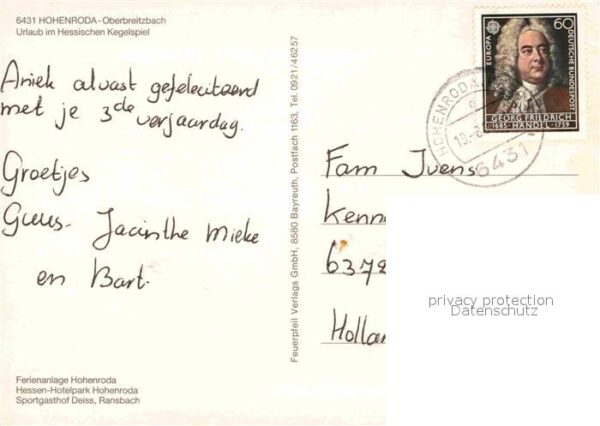 6431 HOHENRODA - Oberbreitzbach
Urlaub im Hessischen Kegelspiel
Aniek alvast gefeliciteerd
met je 3de verjaardag.
Groetjes
Guus. Jacinthe Mieke
en Bart.
Ferienanlage Hohenroda
Hessen-Hotelpark Hohenroda
Sportgasthof Deiss, Ransbach
Feuerpfeil Verlags GmbH, 8580 Bayreuth, Postfach 1163, Tel. 0921/46257
EUROPA
60
DEUTSCHE BUNDESPOST
GEORG FRIEDRICH
1685 HÄNDEL · 1759
HOHENRODA
6431
Fam Juens
Kenne
6372
Hollan
privacy protection
Datenschutz